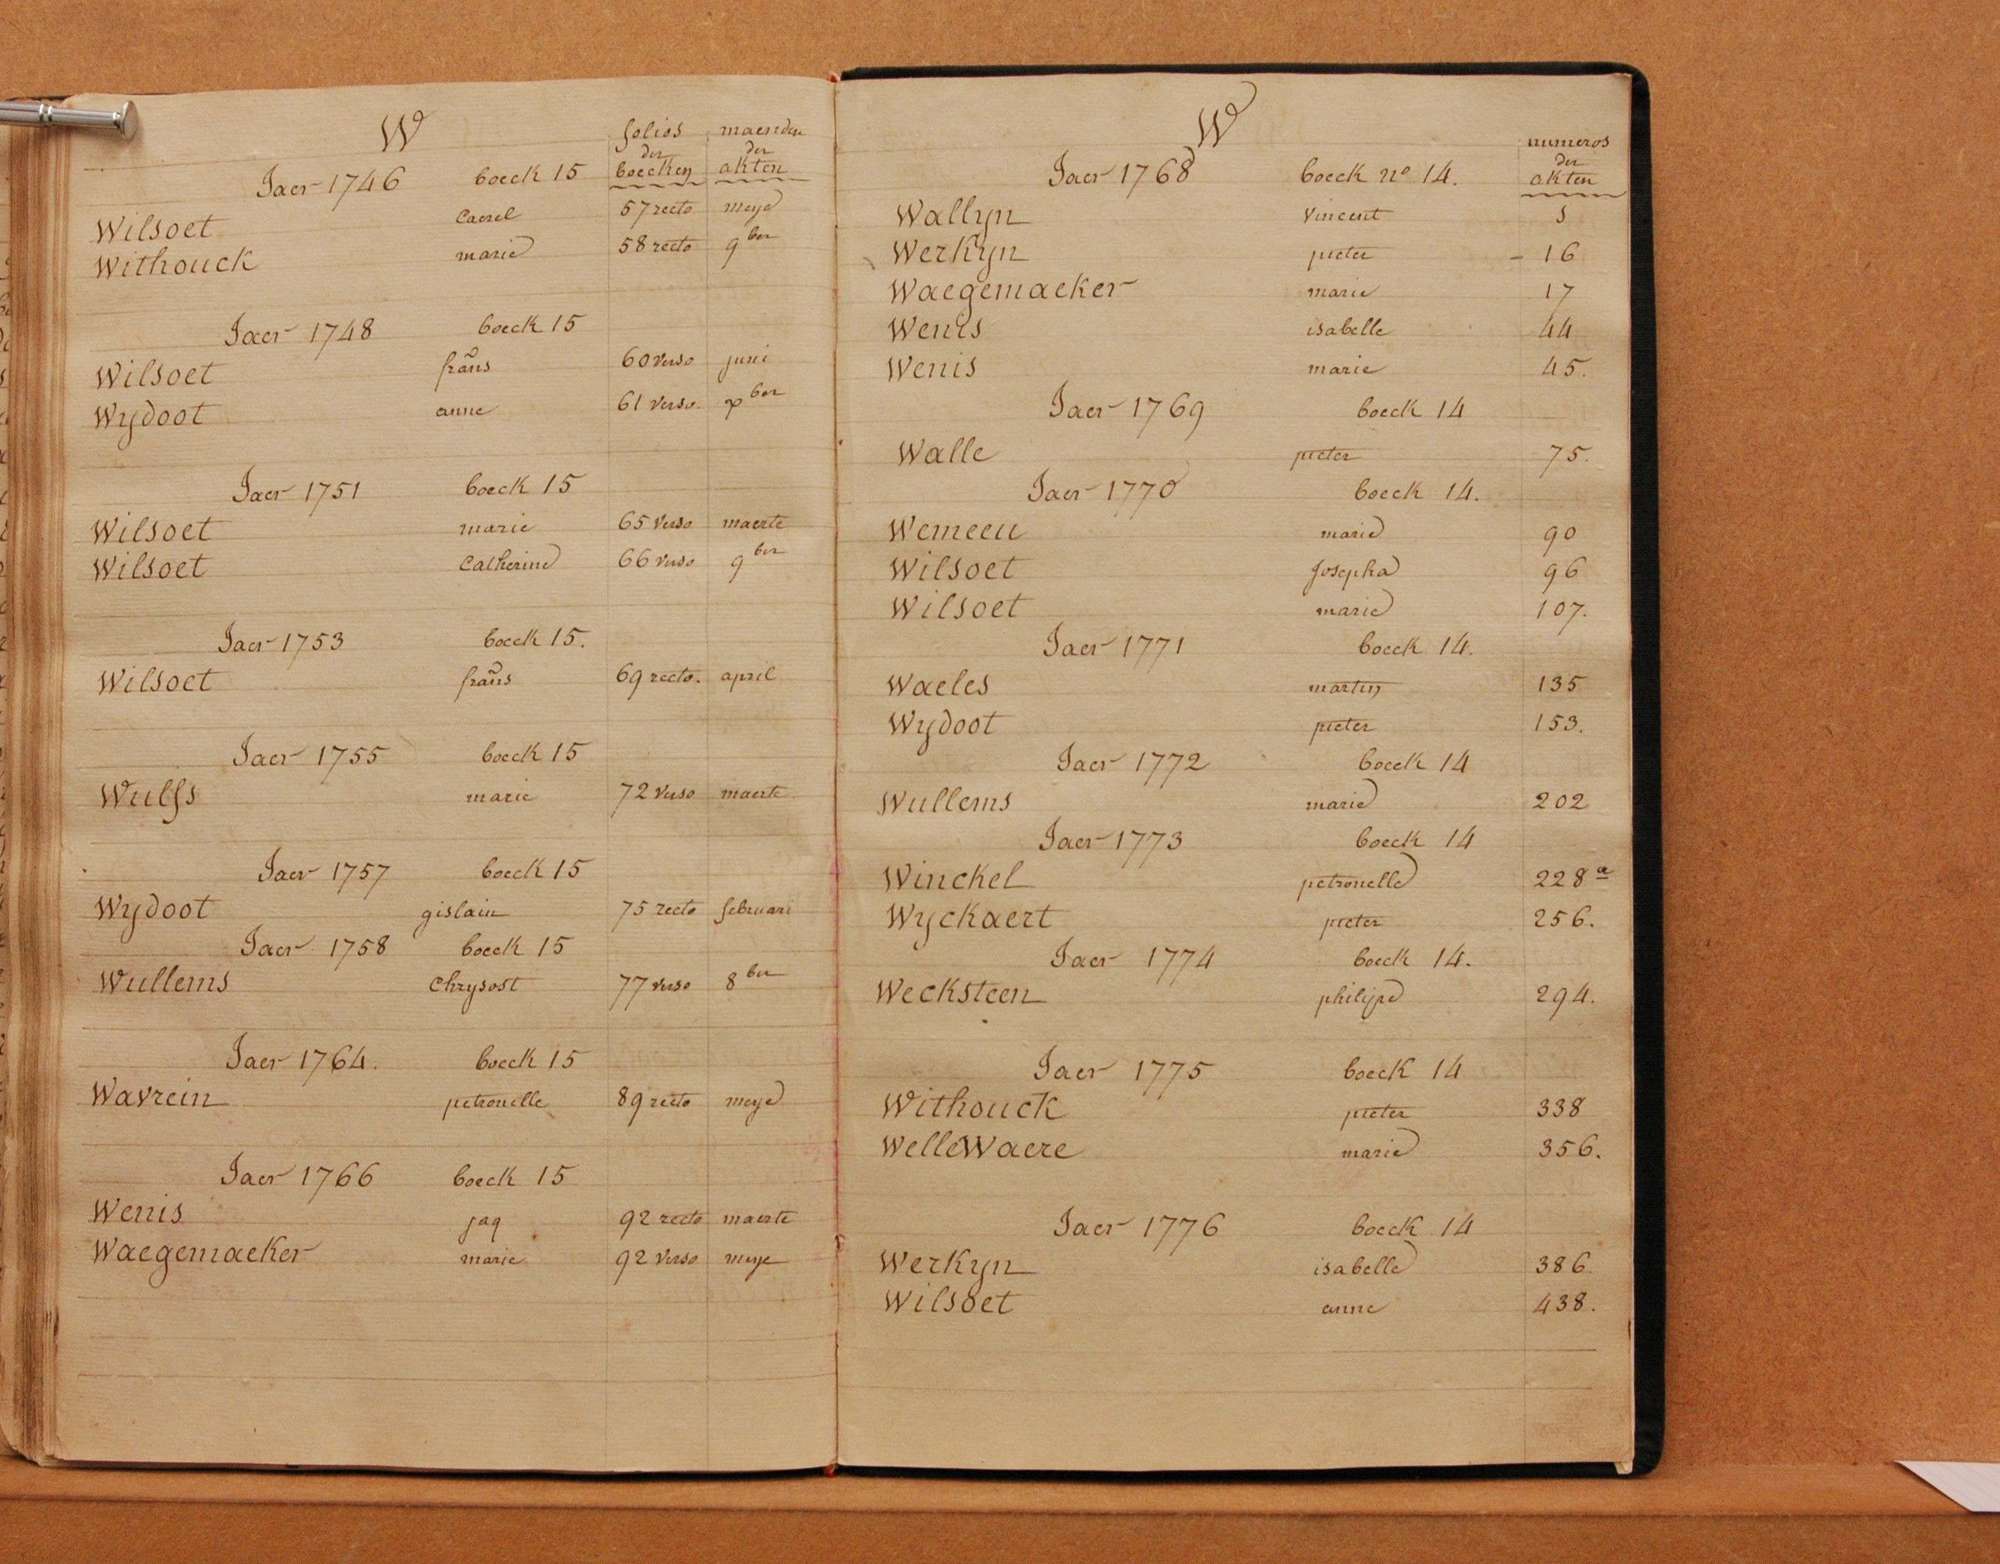 W folios maenden
der der
Jaer 1746 boeck 15 boecken akten
Wilsoet Caerel 57 recto meye
Withouck marie 58 recto 9ber
Jaer 1748 boeck 15
Wilsoet frans 60 verso juni
Wydoot anne 61 verso. xber
Jaer 1751 boeck 15
Wilsoet marie 65 verso maerte
Wilsoet Catherine 66 verso 9ber
Jaer 1753 boeck 15.
Wilsoet frans 69 recto. april
Jaer 1755 boeck 15
Wulfs marie 72 verso maerte
Jaer 1757 boeck 15
Wydoot gislain 75 recto februari
Jaer 1758 boeck 15
Wullems Chrysost 77 verso 8ber
Jaer 1764. boeck 15
Wavrein petronelle 89 recto meye
Jaer 1766 boeck 15
Wenis jaq 92 recto maerte
Waegemaeker marie 92 verso meye
W numeros
der
Jaer 1768 boeck no 14. akten
Wallyn Vincent 5
Werkyn pieter - 16
Waegemaeker marie 17
Wenis isabelle 44
Wenis marie 45.
Jaer 1769 boeck 14
Walle pieter 75.
Jaer 1770 boeck 14.
Wemeeu marie 90
Wilsoet Josepha 96
Wilsoet marie 107.
Jaer 1771 boeck 14.
Waeles martin 135
Wydoot pieter 153.
Jaer 1772 boeck 14
Wullems marie 202
Jaer 1773 boeck 14
Winckel petronelle 228a
Wyckaert pieter 256.
Jaer 1774 boeck 14.
Wecksteen philipe 294.
Jaer 1775 boeck 14
Withouck pieter 338
WelleWaere marie 356.
Jaer 1776 boeck 14
Werkyn isabelle 386.
Wilsoet anne 438.